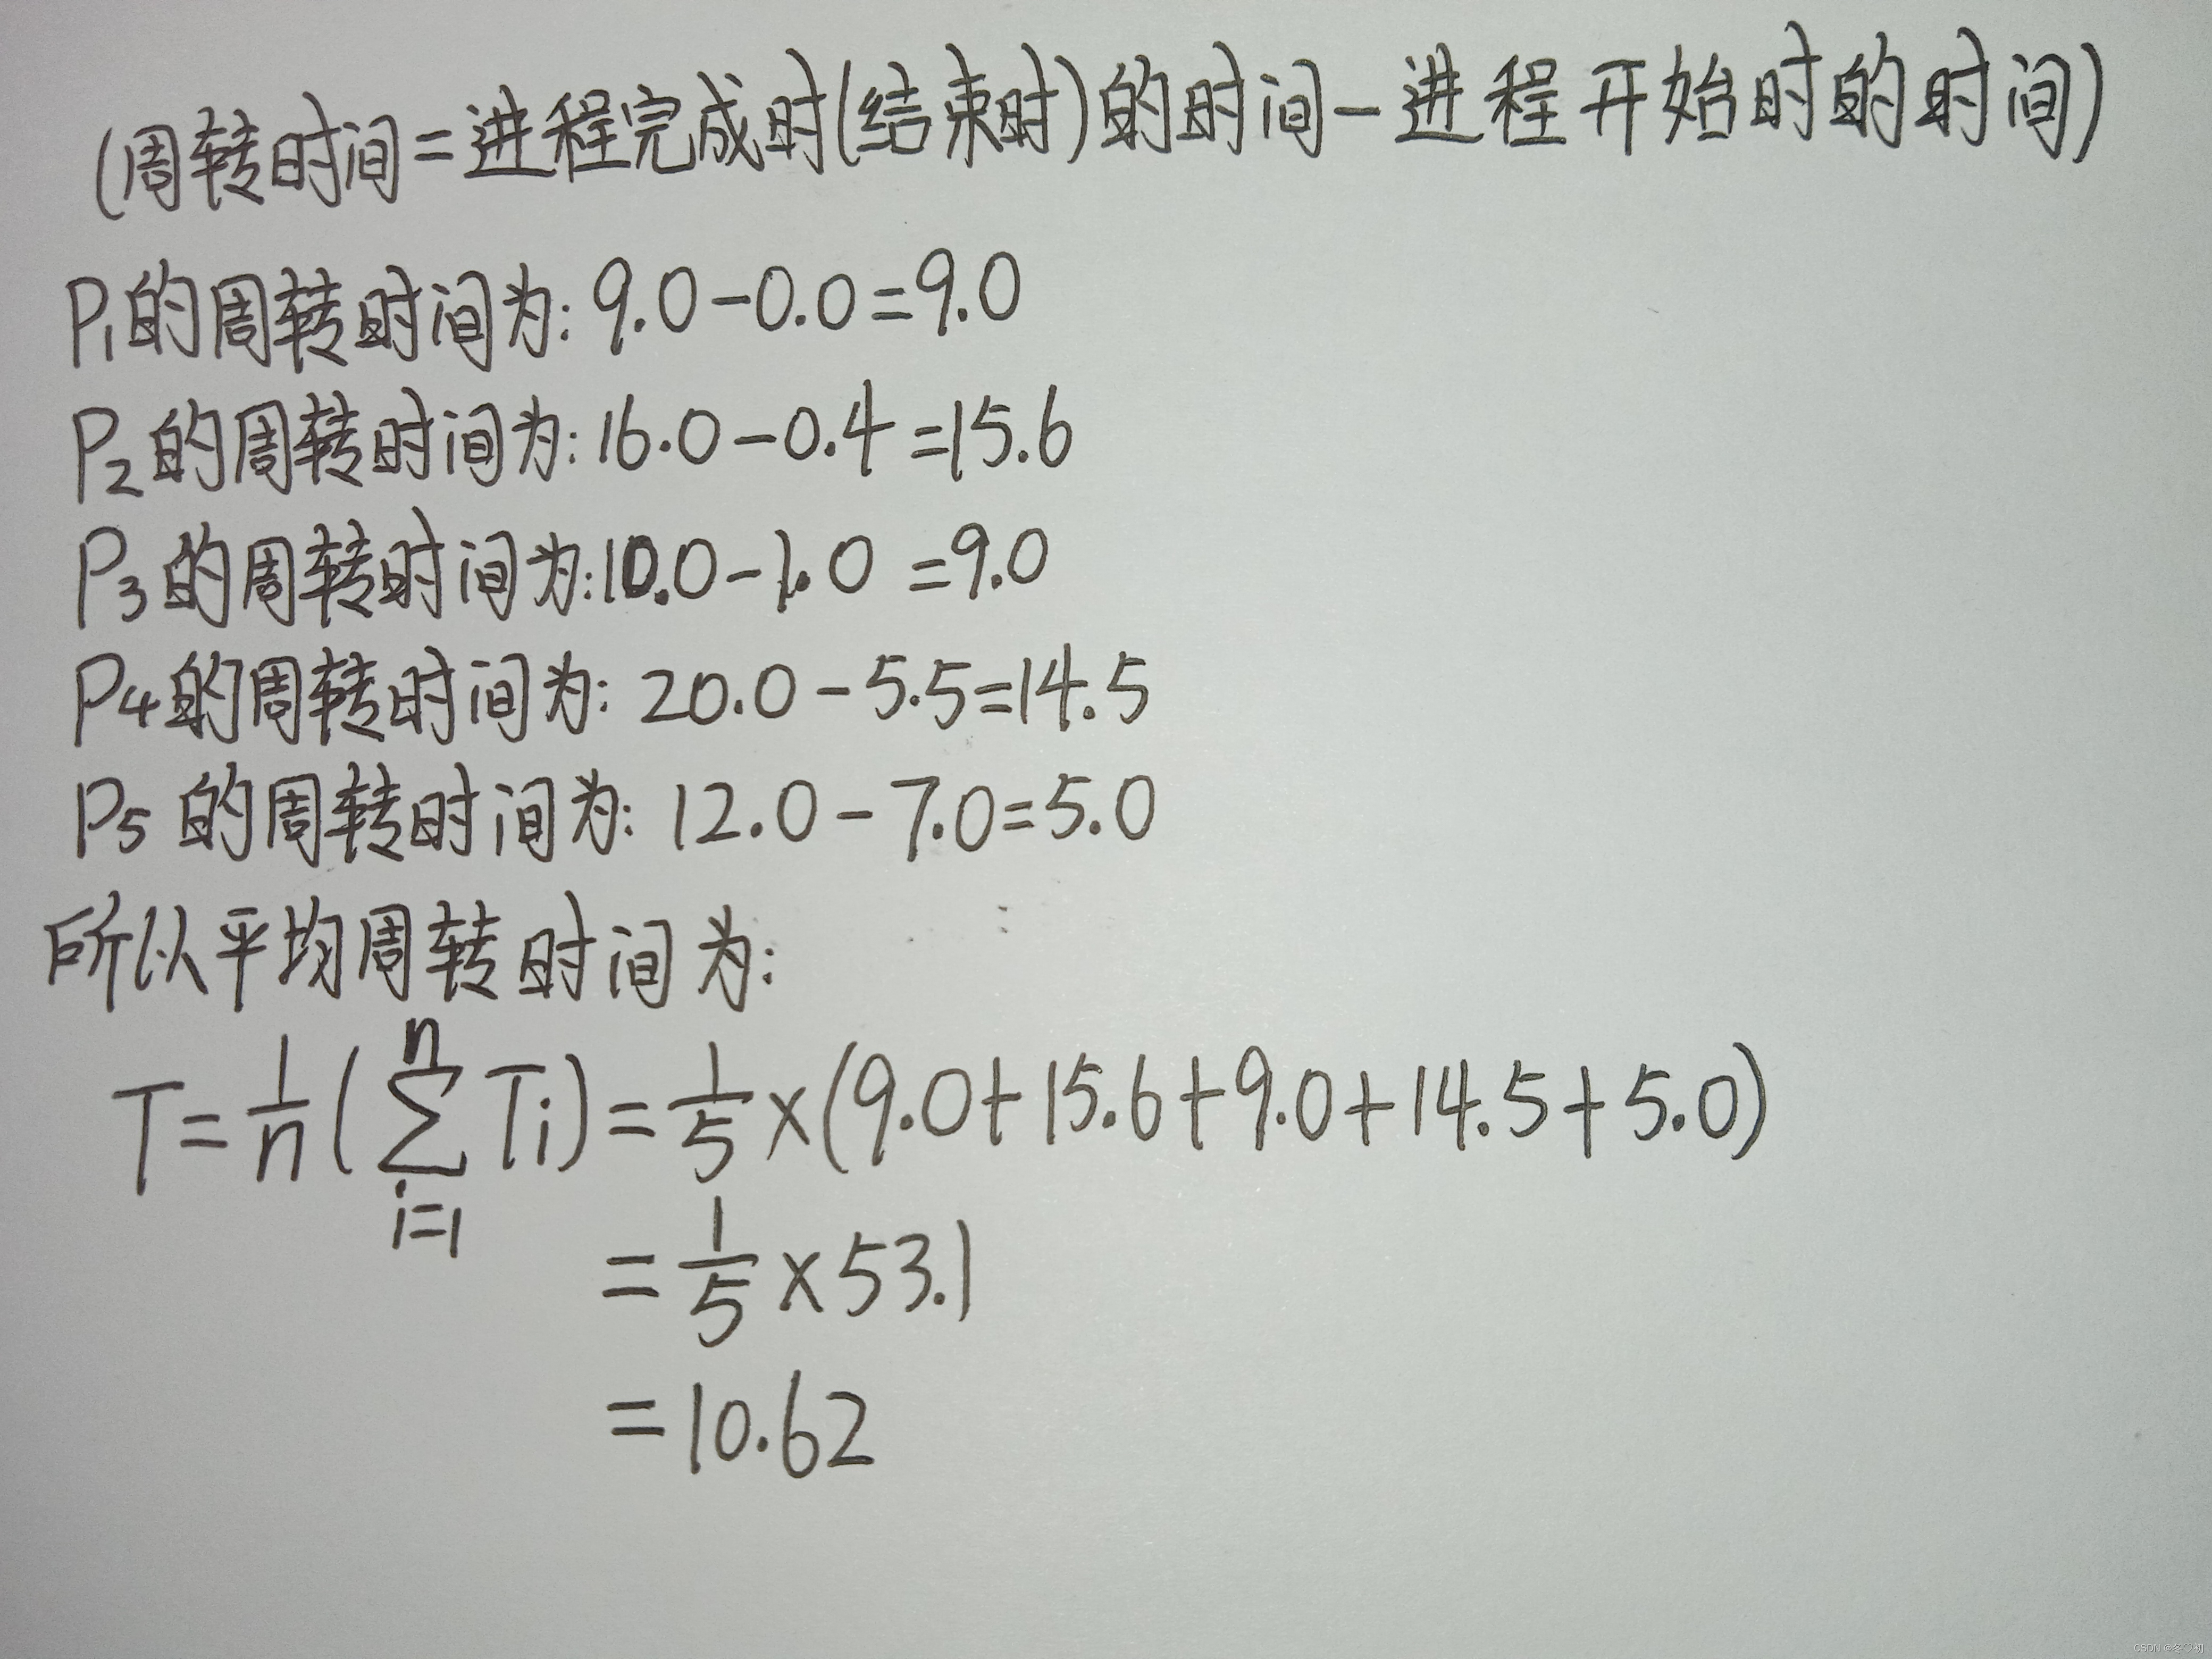 (周转时间=进程完成时(结束时)的时间-进程开始时的时间)
P₁的周转时间为:9.0-0.0=9.0
P₂的周转时间为:16.0-0.4=15.6
P₃的周转时间为:10.0-1.0=9.0
P₄的周转时间为:20.0-5.5=14.5
P₅的周转时间为:12.0-7.0=5.0
所以平均周转时间为:
T=1/n(∑ⁿᵢ₌₁Ti)=1/5×(9.0+15.6+9.0+14.5+5.0)
=1/5×53.1
=10.62
CSDN @冬♡初